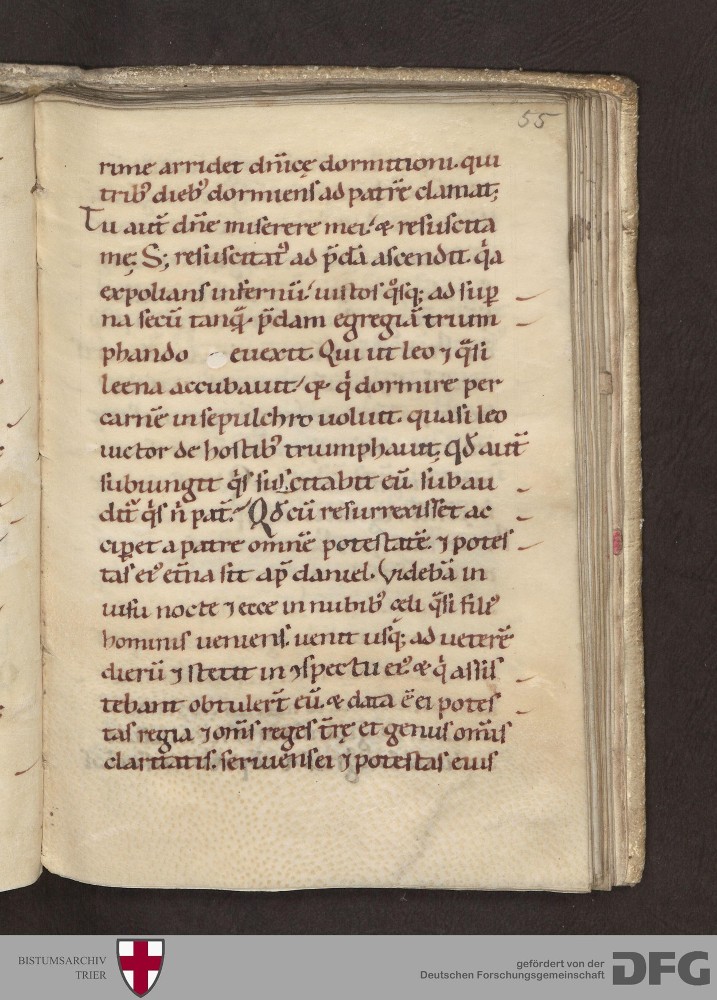 55
rime arridet dn̄ice dormitioni. qui
trib᷒ dieb᷒ dormiens ad patrē clamat;
Tu aut̄ dn̄e miserere mei.᷎ & resuscita
me; S; resuscitat᷒ ad p̄dā ascendit. q̊a
expolians infernū. uictos q̊sq; ad sup̄
na secū tanq̄ p̄dam egregiā trium
phando euexit. Qui ut leo ⁊ q̊si
leena accubauit / & q̊ dormire per
carnē in sepulchro uoluit. quasi leo
uictor de hostib᷒ triumphauit; qđ aut̄
subiungit q̊s suscitabit eū. subau
dit᷑ q̊s n̄ pat̄. Qđ cū resurrexiss& ac
cip̄et a patre om̄nē potestatē. ⁊ potes
tas ei᷒ et̄na sit ap̄ daniel. Videbā in
uisu nocte ⁊ ecce in nubib᷒ celi q̊si fili᷒
hominis ueniens. uenit usq; ad ueterē
dierū ⁊ stetit in ɔspectu ei᷒. & q̊ assis
tebant obtuler̄t eū. & data ē ei potes
tas regia ⁊ om̄s reges t̄re et genus om̄is
claritatis. seruiens ei ⁊ potestas eius
BISTUMSARCHIV
TRIER
gefördert von der
Deutschen Forschungsgemeinschaft
DFG